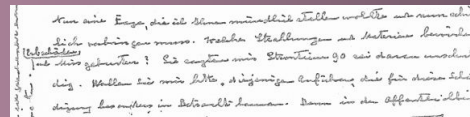 Nun eine Frage, die ich Ihnen mündlich stellen wollte und nun schrift-
lich vorbringen muss. Welche Strahlungen und Materien bewirken
Erbschäden
und Missgeburten? Sie sagten mir Strontium 90 sei daran unschul-
dig. Wollen Sie mir bitte, diejenigen anführen, die für diese Schä-
digung besonders in Betracht kommen. Denn in der öffentlichkei